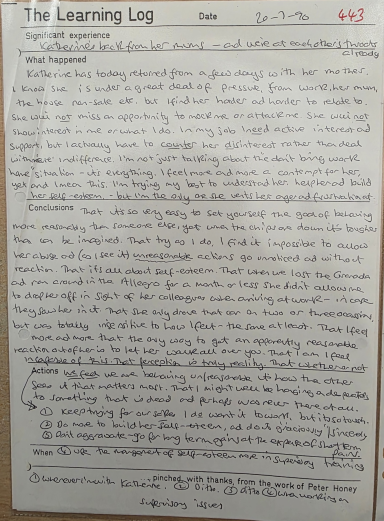 The Learning Log Date 20-7-90 443
Significant experience
Katherine's back from her mums - and we're at each other's throats
already
What happened
Katherine has today returned from a few days with her mother.
I know she is under a great deal of pressure, from work, her mum,
the house non-sale etc, but I find her harder and harder to relate to.
She will not miss an opportunity to mock me or attack me. She will not
show interest in me or what I do. In my job I need active interest and
support, but I actually have to counter her disinterest rather than deal
with mere indifference. I'm not just talking about the don't bring work
home situation - its everything. I feel more and more a contempt for her,
yet and I mean this. I'm trying my best to understand her help her and build
her self-esteem - but I'm the only one she vents her anger and frustration at
Conclusions That its so very easy to set yourself the goal of behaving
more reasonably than someone else, yet when the chips are down its tougher
than can be imagined. That try as I do, I find it impossible to allow
her abuse and (as I see it) unreasonable actions go unnoticed and without
reaction. That its all about self-esteem. That when we lost the Granada
and ran around in the Allegro for a month or less she didn't allow me
to drop her off in sight of her colleagues when arriving at work - in case
they saw her in it. That she only drove that car on two or three occasions,
but was totally insensitive to how I felt - the same at least. That I feel
more and more that the only way to get an apparently reasonable
reaction out of her is to let her walk all over you. That I am I feel
this that perception is truly reality. That whether or not
Actions we feel we are behaving unreasonably its how the other
sees it that matters most. That I might well be hanging onto
to something that is dead and perhaps was never there at all.
① Keep trying for our sakes I do want it to work, but its so tough.
② Do more to build her self-esteem, and do it graciously/sincerely
③ Don't aggravate - go for long term gain at the expense of short term
pain.
When ④ use the management of self-esteem more in supervisory training
① whenever I'm with Katherine. ② Ditto. ③ Ditto ④ when working on
pinched, with thanks, from the work of Peter Honey
supervisory issues